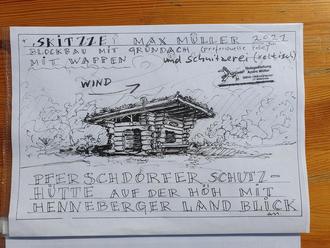 "SKITZZE" MAX MÜLLER 2021
BLOCKBAU MIT GRÜNDACH
MIT WAPPEN und Schnitzerei (keltisch)
WIND
PFERSCHDÖRFER SCHUTZ-
HÜTTE AUF DER HÖH MIT
HENNEBERGER LAND BLICK